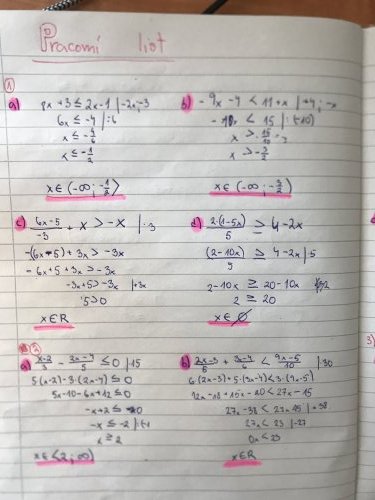 Pracovní list
1
a) 8x + 3 ≤ 2x - 1 |-2x,-3
6x ≤ -4 |:6
x ≤ -4/6
x ∈ (-∞;-1/2⟩
b) - 9x - 4 < 11 + x |+4; -x
- 10x < 15 |:(-10)
x > -15/10
x > -3/2
x ∈ (-∞;-3/2)
c) (6x-5)/-3 + x > -x |·3
-(6x-5) + 3x > -3x
-6x + 5 + 3x > -3x
-3x + 5 > -3x |+3x
5 > 0
x ∈ R
d) 2·(1-5x)/5 ≥ 4 - 2x
(2-10x)/5 ≥ 4 - 2x |·5
2 - 10x ≥ 20 - 10x
2 ≥ 20
x ∈ ∅
2
a) (x-2)/3 - (2x-4)/5 ≤ 0 |·15
5(x-2) - 3·(2x-4) ≤ 0
5x - 10 - 6x + 12 ≤ 0
-x + 2 ≤ 0
-x ≤ -2 |:(-1)
x ≥ 2
x ∈ ⟨2; ∞)
b) (2x-3)/5 + (3x-4)/6 < (9x-5)/10 |·30
6·(2x-3) + 5·(3x-4) < 3·(9x-5)
12x - 18 + 15x - 20 < 27x - 15
27x - 38 < 27x - 15 |+38
27x < 23 |-27
0x < 23
x ∈ R
3)